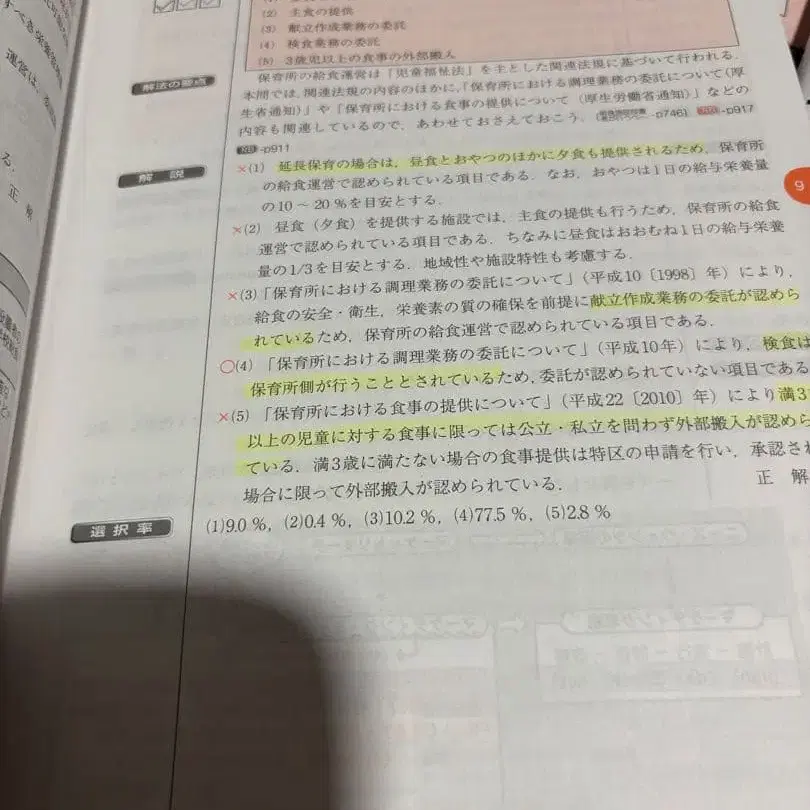 (2) 主食の提供
(3) 献立作成業務の委託
(4) 検食業務の委託
(5) 3歳児以上の食事の外部搬入
解法の要点
保育所の給食運営は「児童福祉法」を主とした関連法規に基づいて行われる.
本問では, 関連法規の内容のほかに,「保育所における調理業務の委託について(厚
生省通知)」や「保育所における食事の提供について(厚生労働省通知)」などの
内容も関連しているので, あわせておさえておこう. -p746) -p917
-p911
解説
×(1) 延長保育の場合は, 昼食とおやつのほかに夕食も提供されるため, 保育所
の給食運営で認められている項目である. なお, おやつは1日の給与栄養量
の10〜20%を目安とする.
×(2) 昼食(夕食)を提供する施設では, 主食の提供も行うため, 保育所の給食
運営で認められている項目である. ちなみに昼食はおおむね1日の給与栄養
量の1/3を目安とする. 地域性や施設特性も考慮する.
×(3)「保育所における調理業務の委託について」(平成10〔1998〕年)により,
給食の安全・衛生, 栄養素の質の確保を前提に献立作成業務の委託が認めら
れているため, 保育所の給食運営で認められている項目である.
○(4)「保育所における調理業務の委託について」(平成10年)により, 検食は
保育所側が行うこととされているため, 委託が認められていない項目である
×(5)「保育所における食事の提供について」(平成22〔2010〕年)により満3
以上の児童に対する食事に限っては公立・私立を問わず外部搬入が認めら
ている. 満3歳に満たない場合の食事提供は特区の申請を行い, 承認され
場合に限って外部搬入が認められている.
正解
選択率
(1)9.0%, (2)0.4%, (3)10.2%, (4)77.5%, (5)2.8%
9
運営は,
正解